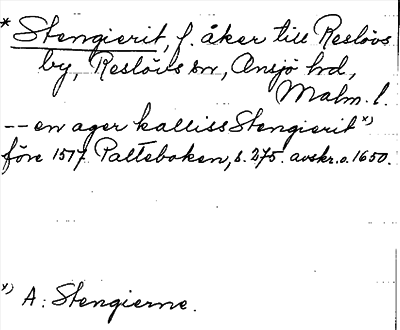 * Stengierit, f. åker till Reslövs
by, Reslövs sn, Onsjö hd,
Malm. l.
-- en ager kalliss Stengierit x)
före 1517 Palteboken, s. 275. avskr. o. 1650.
x) A: Stengierne.